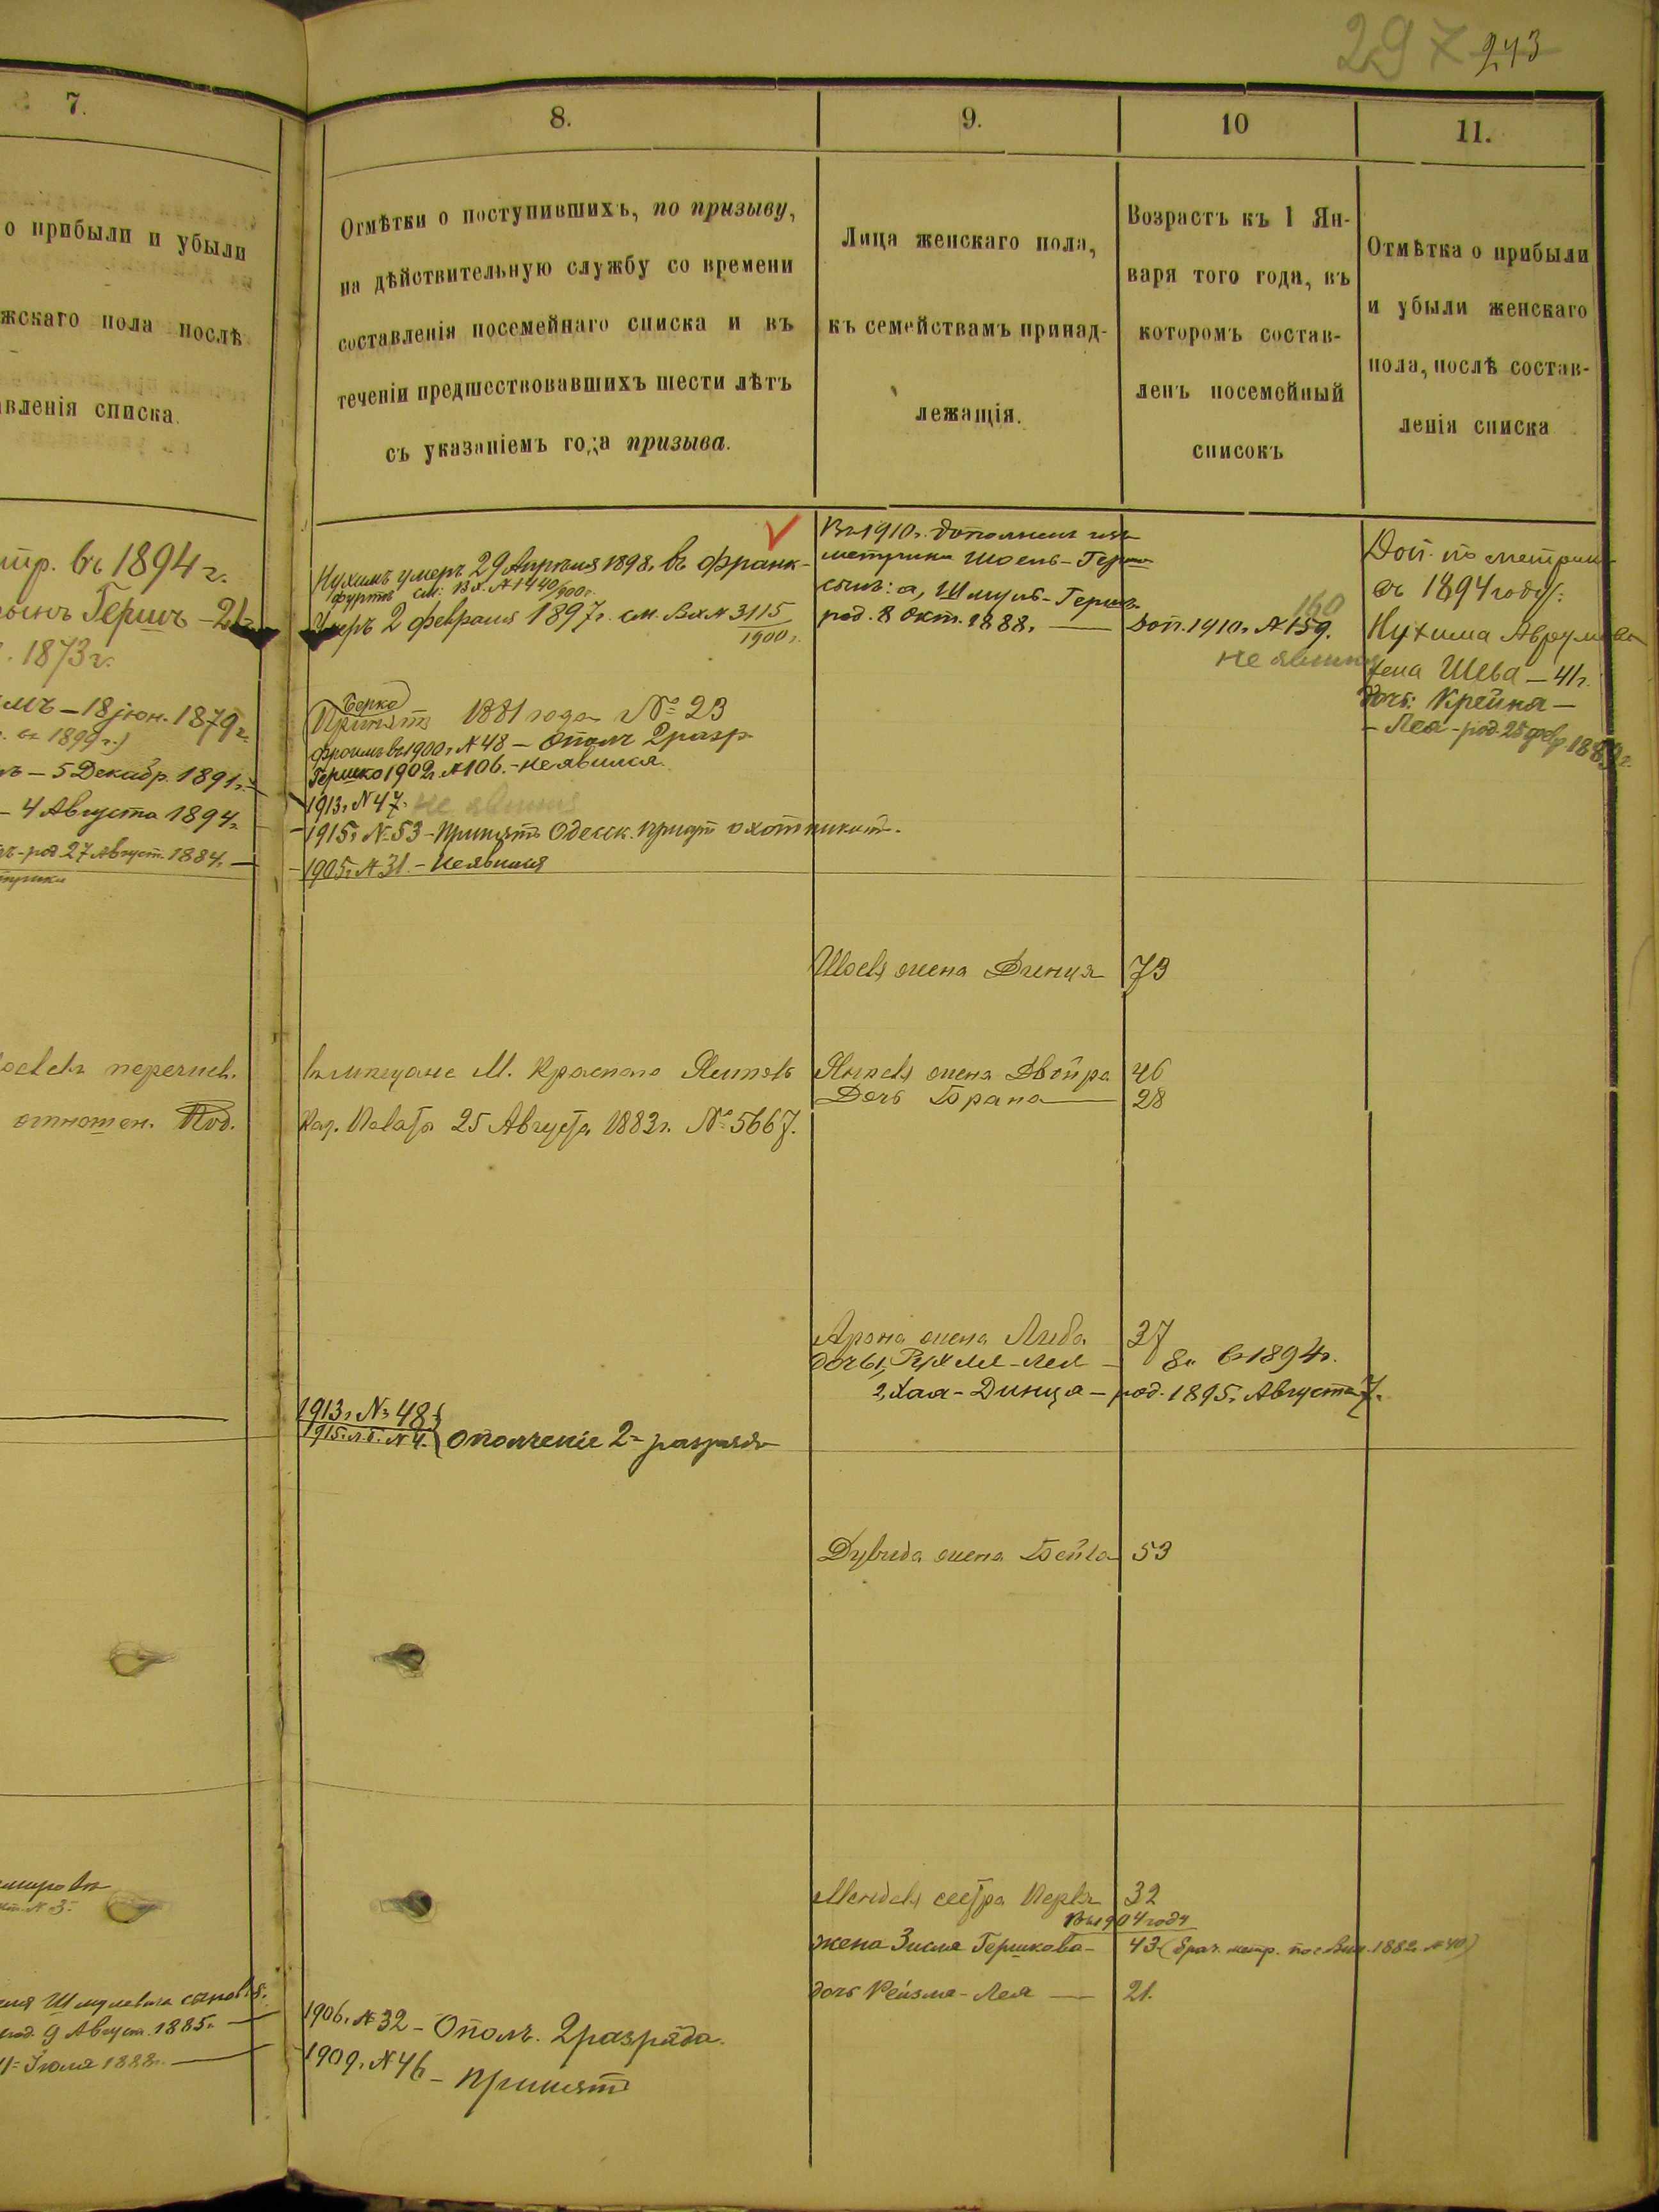 297 243
7.
о прибыли и убыли
жскаго пола послѣ
вленія списка.
8.
Отмѣтки о поступившихъ, по призыву,
на дѣйствительную службу со времени
составленія посемейнаго списка и въ
теченіи предшествовавшихъ шести лѣтъ
съ указаніемъ года призыва.
9.
Лица женскаго пола,
къ семействамъ принад-
лежащія.
10
Возрастъ къ 1 Ян-
варя того года, въ
которомъ состав-
ленъ посемейный
списокъ
11.
Отмѣтка о прибыли
и убыли женскаго
пола, послѣ состав-
ленія списка
тр. въ 1894 г.
сынъ Гершъ - 21 г.
. 1873 г.
мъ - 18 Іюн. 1879 г.
въ 1899 г.)
ъ - 5 Декабр. 1891 г. -
- 4 Августа 1894 г.
ъ - род. 27 Август. 1884 г. -
трики
Нухимъ умеръ 29 Апрѣля 1898 г. въ Франк-
фуртѣ см: Вх. № 1440/900 г.
Умеръ 2 февраля 1897 г. см. Вх № 3115/1900 г.
Берко
Принятъ 1881 года № 23
Фроимъ въ 1900 г. № 48 - Ополч 2 разр.
Гершко 1902 г. № 106. - неявился.
1913 г. № 47. не явился
- 1915 г. № 53 - Принятъ Одесск. охотникомъ.
- 1905 г. № 31. - неявился
Въ 1910 г. дополнен изъ
метрики Шоель - Герш
сынъ: а, Шмуль - Гершъ
род. 8 Окт. 1888 г. —
160
Доп. 1910 г. № 159.
не явился
Доп. по метрик
въ 1894 году:
Нухима Аврумова
жена Шева - 41 г.
дочь: Крейна -
- Лея - род. 25 февр 1889 г.
Шоеля жена Динця 73
перечисл.
отношен. Под.
въ мещане М. Краснаго Ямполь
Каз. Палаты 25 Августа 1883 г. № 5667.
Янкеля жена Двойра 46
Дочь Брана — 28
Арона жена Либа 37
дочь 1, Рухля - Лея - 8 л. въ 1894 г.
2, Хая - Динця - род. 1895 г. Августа 7.
1913 г. № 48
1915 г. № 4. } ополченіе 2 = разряда
Дувида жена Бейла 53
№ 3.
Менделя сестра Перля 32
Въ 1904 году
жена Зисля Гершкова - 43 (брач. метр. 1882 № 40)
дочь Рейзля - Лея — 21.
Шмулевича сыновья:
род. 9 Август. 1885 г. —
11 = Іюля 1888 г. —
1906 г. № 32 - Ополч. 2 разряда.
1909 г. № 46 - Принятъ